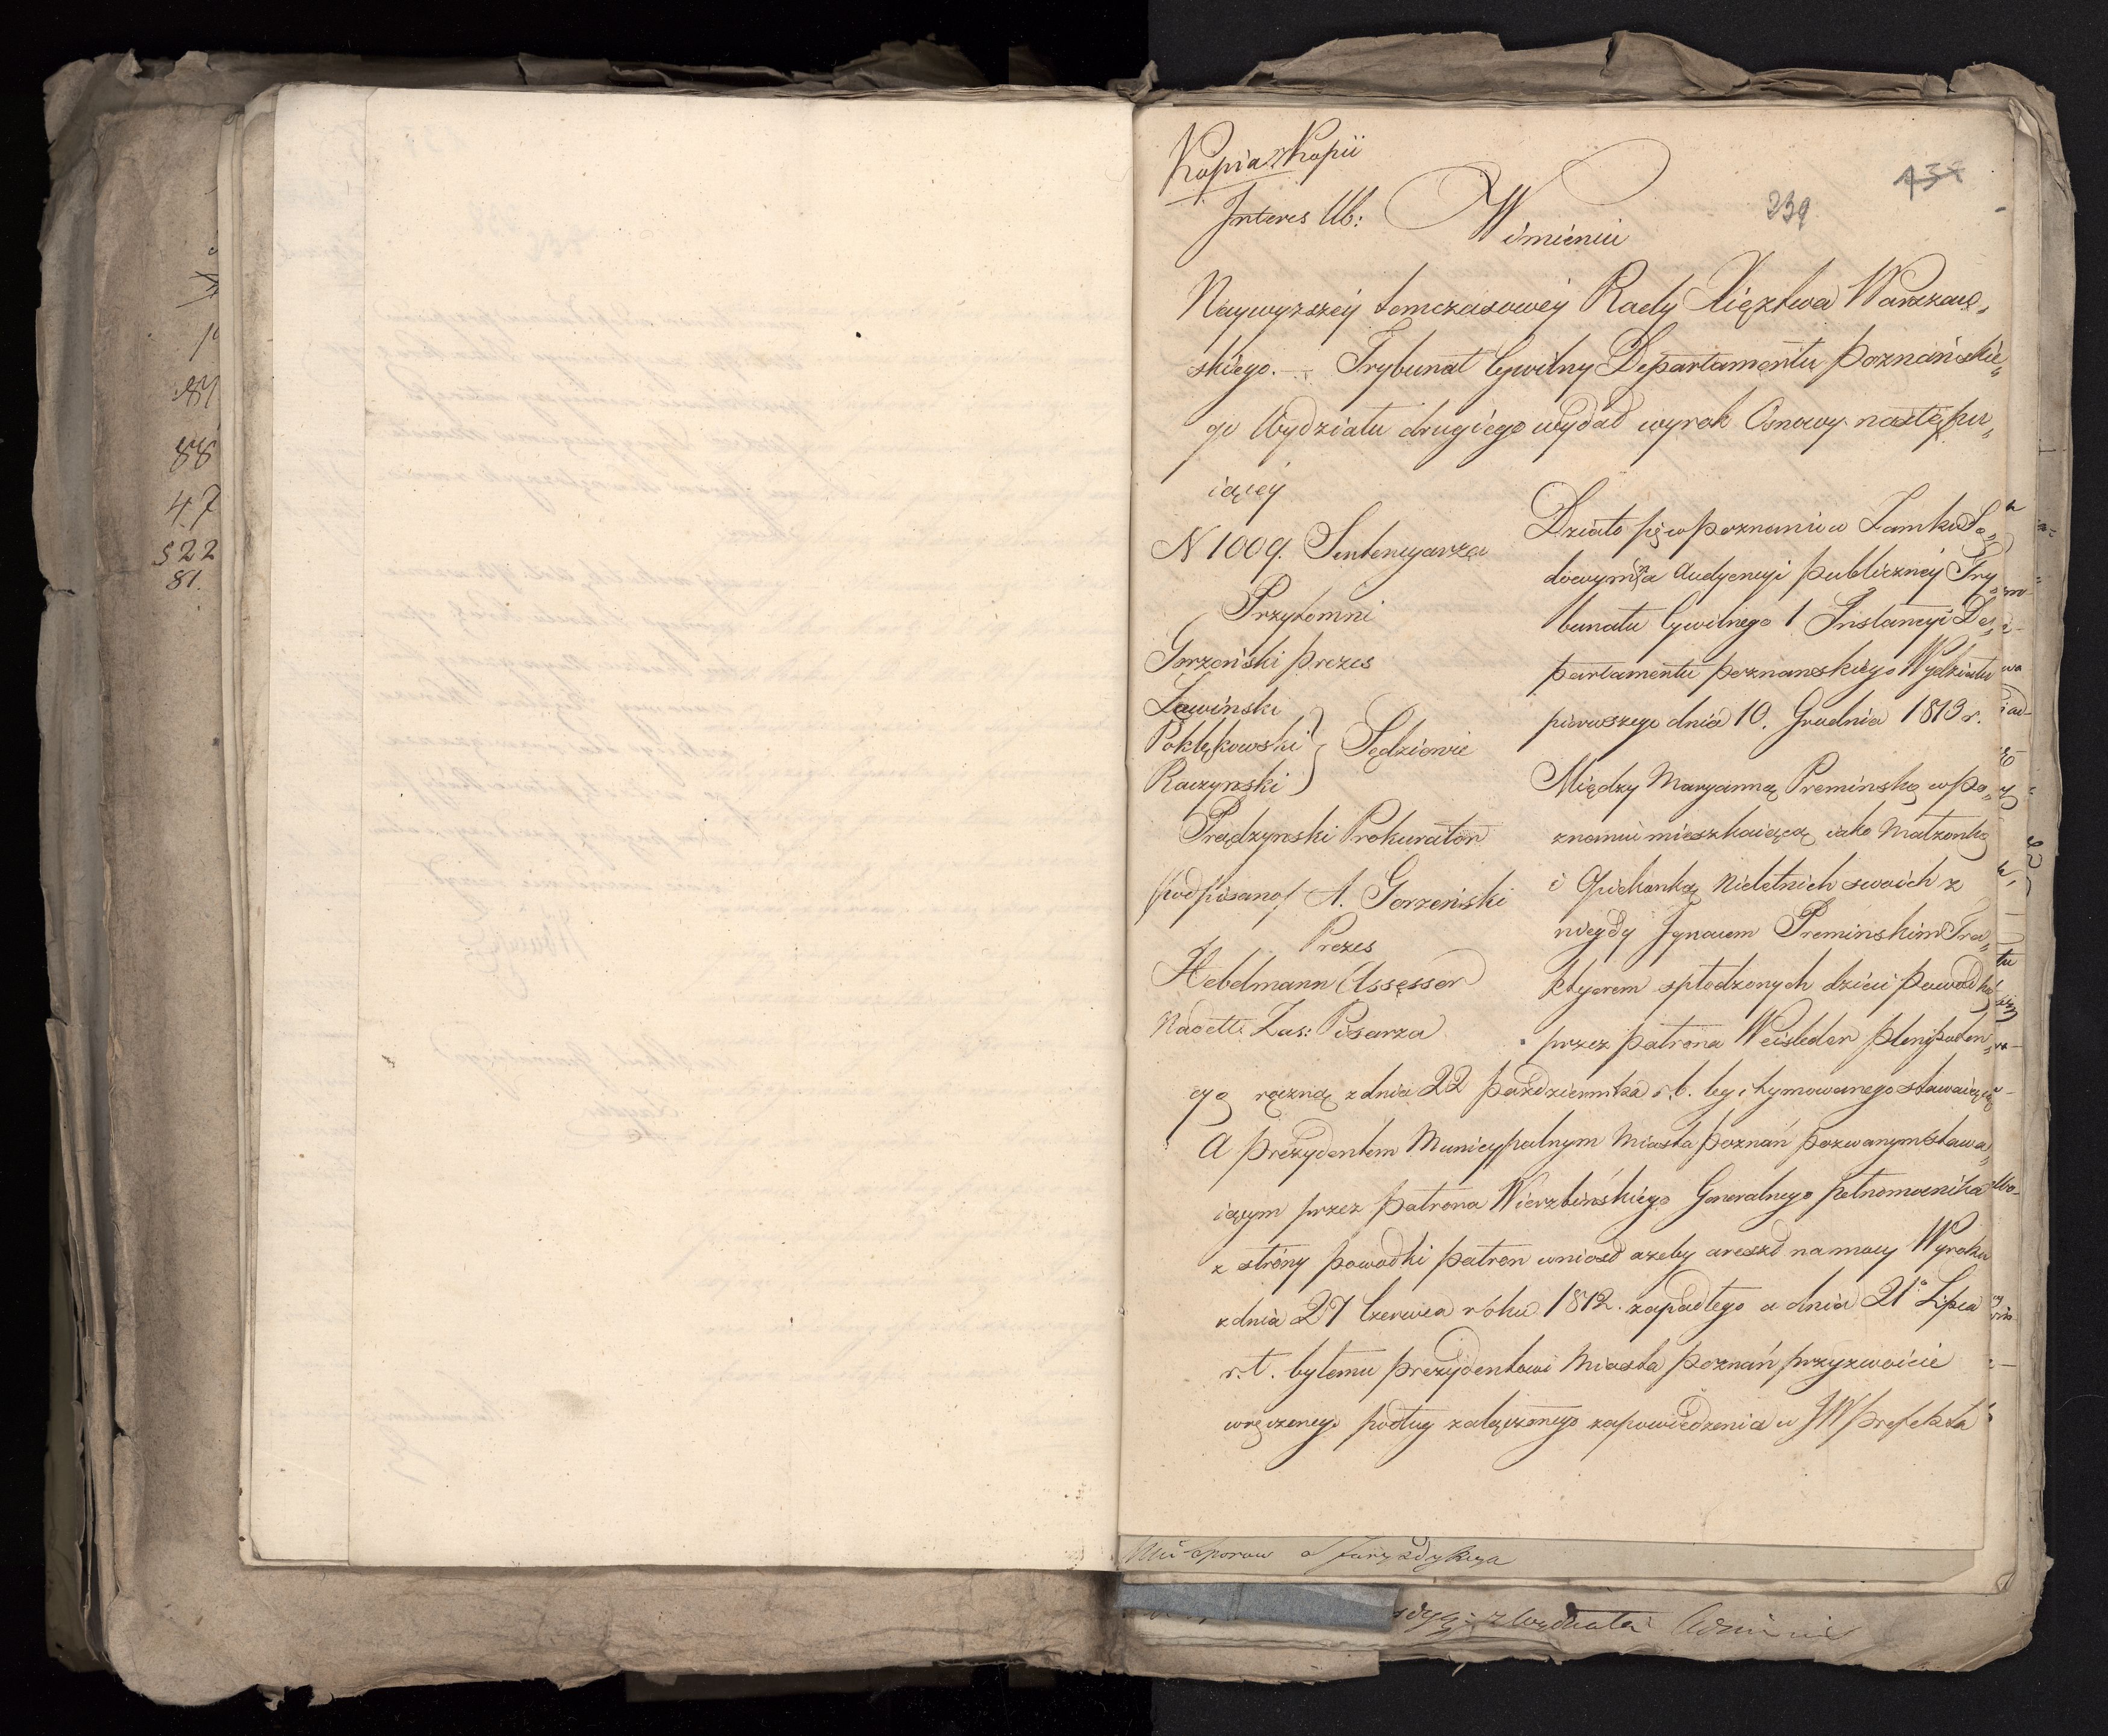 Kopia z Kopii
239
Interes Ub:
W imieniu
Naywyzszey temczasowey Rady Xięztwa Warszaw„
skiego. Trybunał Cywilny Departamentu Poznańskie„
go Wydziału drugiego wydał wyrok Osnowy następu„
iącey
N 1009. Sentencyarza
Przytomni
Gorzeński Prezes
Ławiński
Poklękowski } Sędziowie
Raczynski
Prądzynski Prokurator
/podpisano/ A. Gorzeński
Prezes
Hebdmann Assessor
Nadelli Zas: Pisarza
Działo się w Poznaniu w Zamku Są„
dowym na Audyencyi publiczney Try„
bunału Cywilnego 1 Instancyi De„
partamentu poznanskiego Wydziału
pierwszego dnia 10. Grudnia 1813 r.
Między Maryanną Preminską w Po„
znaniu mieszkaiącą iako Małzonką
i Opiekunką Nieletnich swoich z
niegdy Ignacem Preminskim Tra„
ktyerem spłodzonych dzieci powodką
przez patrona Weisleder plenipoten„
cyą ręczną z dnia 22 Października r. b. legitymowanego stawaiącą
A prezydentem Municypalnym Miasta Poznań pozwanym stawa„
iącym przez patrona Wierzbińskiego Generalnego pełnomocnika
z strony powodki patron wniosł azeby areszt na mocy Wyroku
z dnia 27 Czerwca roku 1812. zapadłego a dnia 21° Lipca
r. t. byłemu prezydentowi Miasta Poznań przyzwoicie
wręczonego podług załączonego zapowiedzenia u JW prefekta
88
47
522
81.